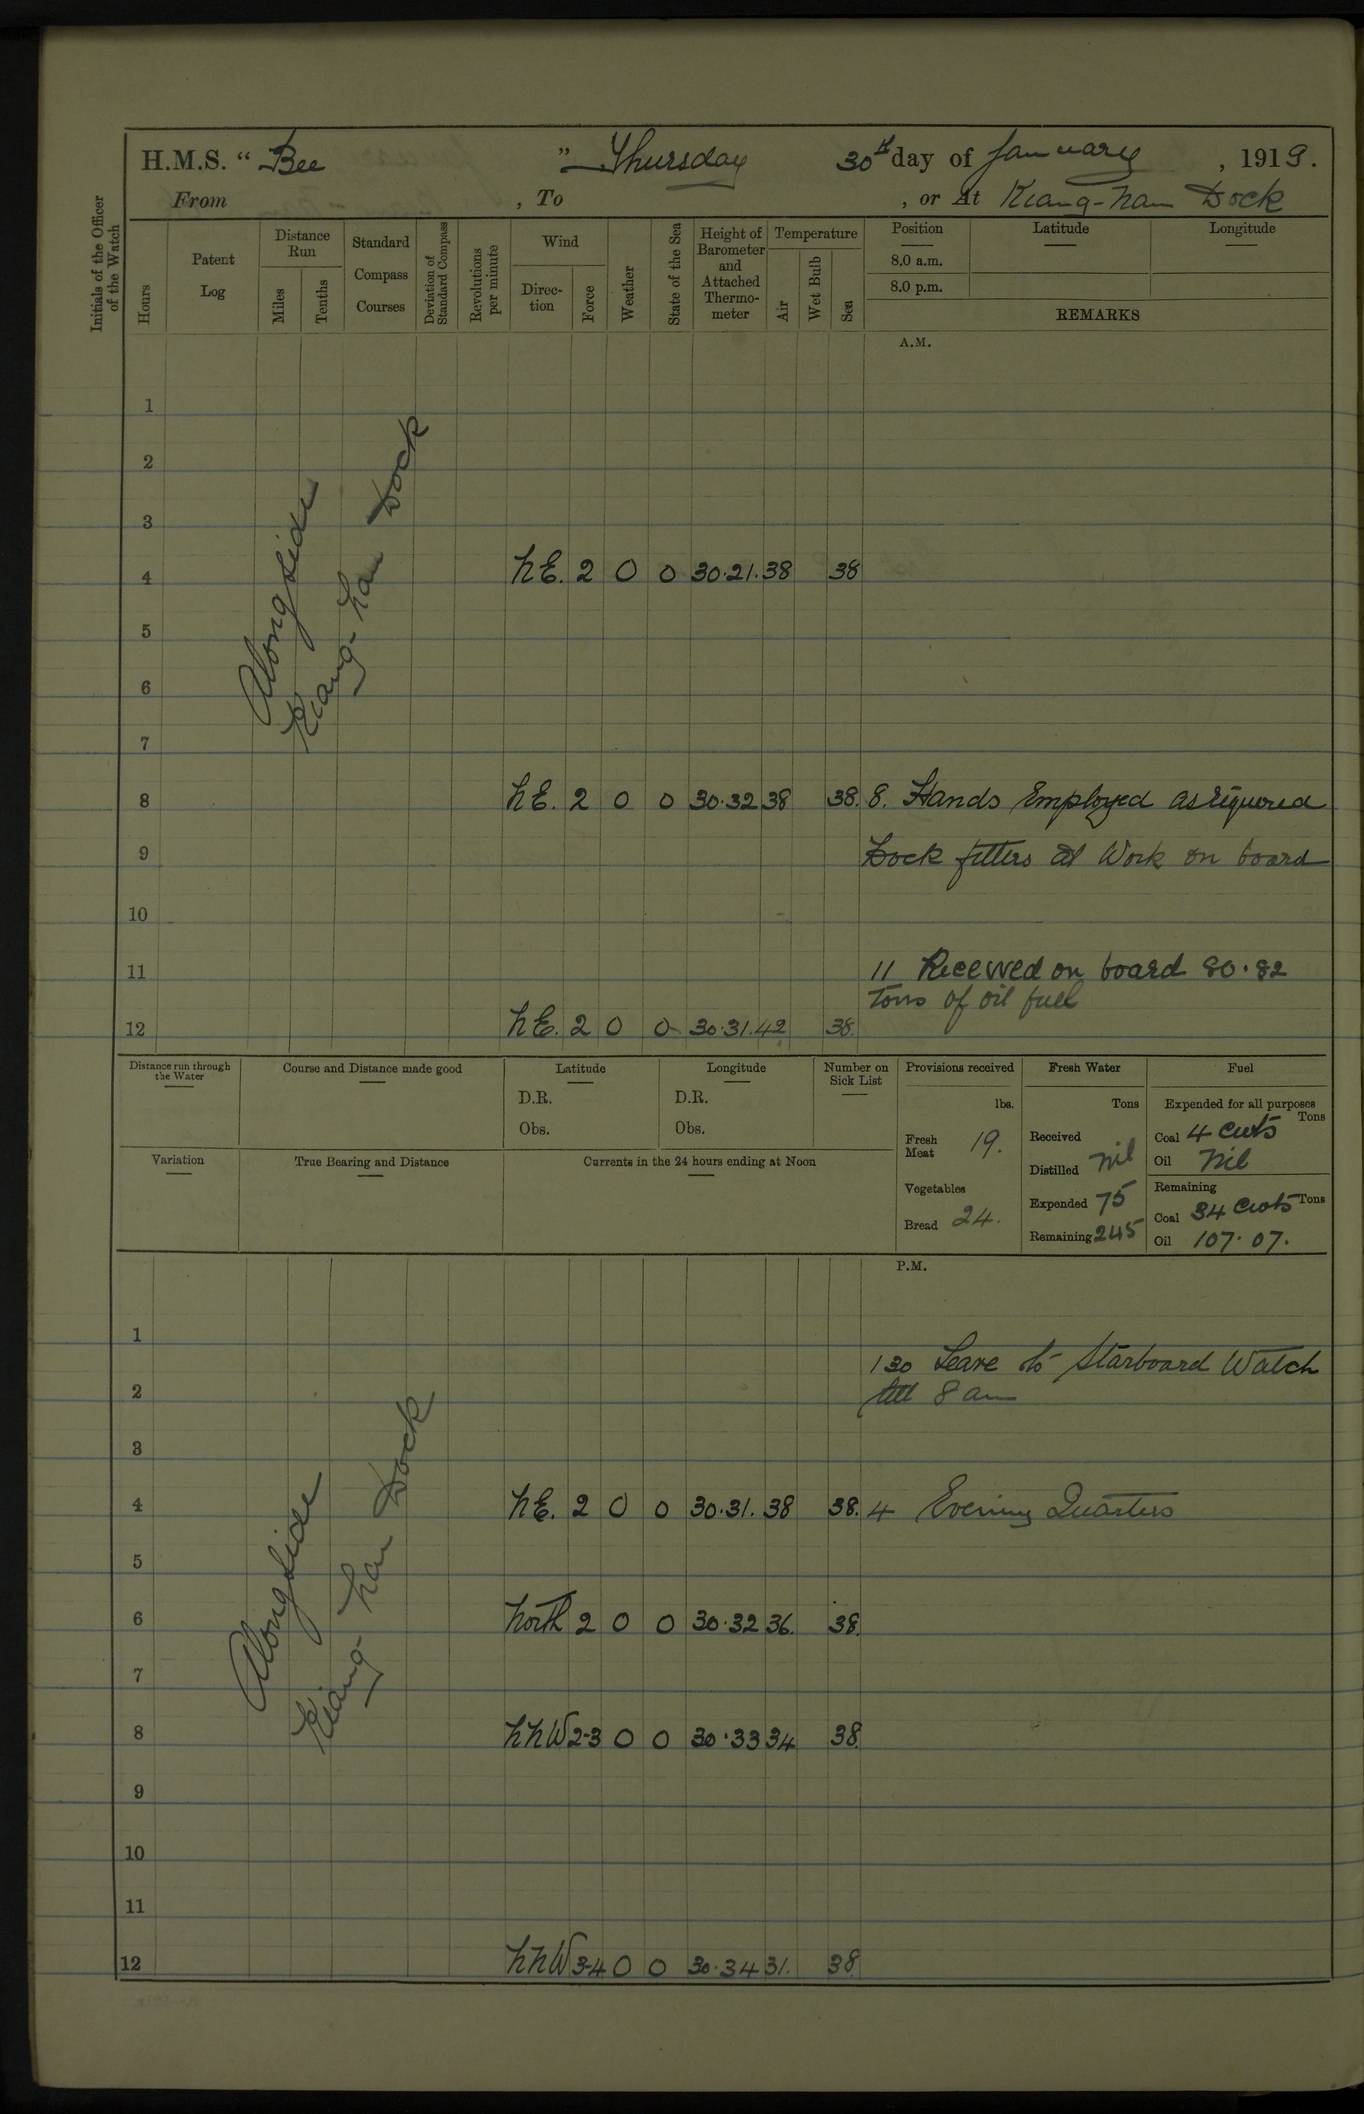 H.M.S. “ Bee ” Thursday 30th day of January , 1919.
From , To , or At Kiang-nan Dock
Initials of the Officer of the Watch
Hours
Patent Log
Distance Run
Miles
Tenths
Standard Compass Courses
Deviation of Standard Compass
Revolutions per minute
Wind
Direction
Force
Weather
State of the Sea
Height of Barometer and Attached Thermometer
Temperature
Air
Wet Bulb
Sea
Position Latitude Longitude
8.0 a.m.
8.0 p.m.
REMARKS
A.M.
Alongside
Kiang-nan Dock
1
2
3
4 NE. 2 0 0 30.21. 38 38
5
6
7
8 NE. 2 0 0 30.32 38 38. 8. Hands Employed as requered
9 Dock fitters at Work on board
10
11 11 Received on board 80.82
tons of oil fuel
12 NE. 2 0 0 30.31. 42 38
Distance run through the Water
Course and Distance made good
Latitude
D.R.
Obs.
Longitude
D.R.
Obs.
Number on Sick List
Provisions received
lbs.
Fresh Meat 19.
Vegetables
Bread 24.
Fresh Water
Tons
Received
Distilled nil
Expended 75
Remaining 245
Fuel
Expended for all purposes
Tons
Coal 4 cwts
Oil Nil
Remaining
Coal 34 cwts Tons
Oil 107.07.
Variation
True Bearing and Distance
Currents in the 24 hours ending at Noon
P.M.
Alongside
Kiang-nan Dock
1
130 Leave to Starboard Watch
2 till 8 am
3
4 NE. 2 0 0 30.31. 38 38. 4 Evening Quarters
5
6 North 2 0 0 30.32 36. 38.
7
8 NNW 2-3 0 0 30.33 34 38.
9
10
11
12 NNW 3-4 0 0 30.34 31. 38